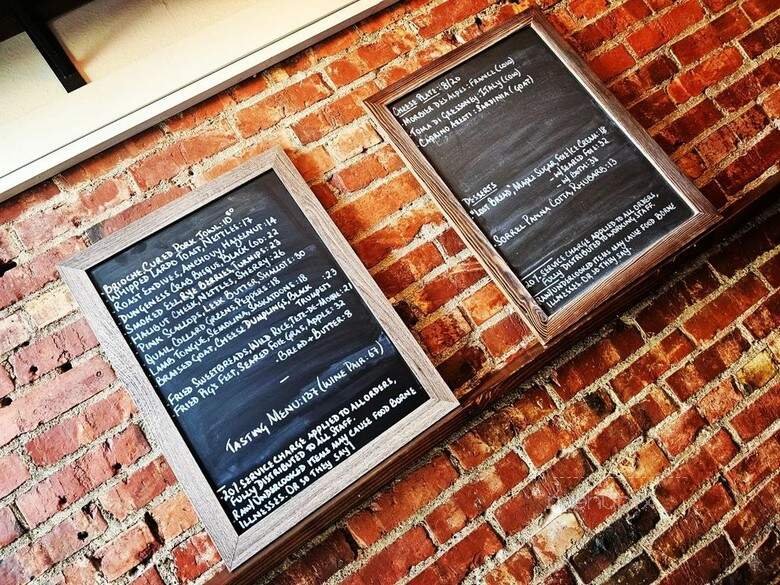 Brioche, Cured Pork Jowl: 10
Whipped Lardo Toast, Nettles: 17
Roast Endives, Anchovy, Hazelnut: 14
Dungeness Crab Bisque, Black Cod: 22
Smoked Eel, Rye Berries, Turnips: 23
Halibut Cheek, Nettles, Shellfish: 26
Pink Scallops, Leek Butter, Shallots: 30
Quail, Collard Greens, Pepper: 18
Lamb Tongue, Semolina, Bagnatore: 18
Braised Goat, Cheese Dumpling, Black Trumpets: 23
Fried Sweetbreads, Wild Rice, Tete-de-Moine: 21
Fried Pig's Feet, Seared Foie Gras, Apple: 32
Bread + Butter: 8
—
Tasting Menu: 137 (Wine Pair: 67)
20% Service Charge applied to all orders,
fully distributed to all staff.
Raw/undercooked items may cause food borne
illnesses. Or so they say!
Cheese Plate: 8/20
Morbier des Alpes: France (cow)
Toma di Gressoney: Italy (cow)
Caprino: Sardinia (goat)
Desserts
"Lost Bread", Maple Sugar Foie Ice Cream: 18
- w/ Seared Foie: 32
- w/ Both: 32
Sorrel Panna Cotta, Rhubarb: 13
20% Service Charge applied to all orders,
fully distributed to working staff.
Raw/undercooked items may cause food borne
illnesses or so they say